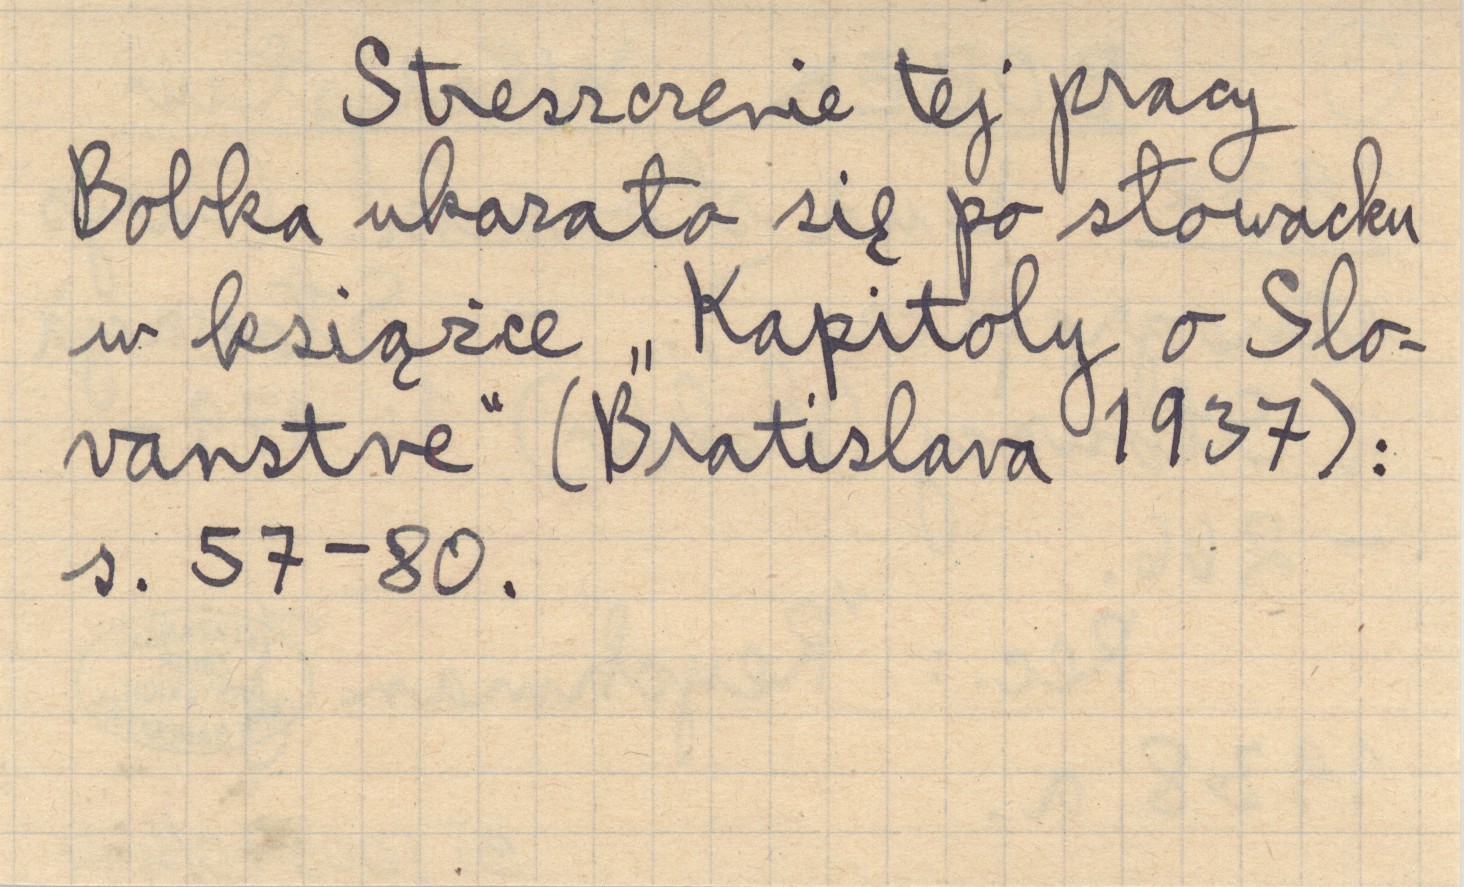 Streszczenie tej pracy
Bobka ukazało się po słowacku
w książce „Kapitoly o Slo-
vanstve“ (Bratislava 1937):
s. 57-80.